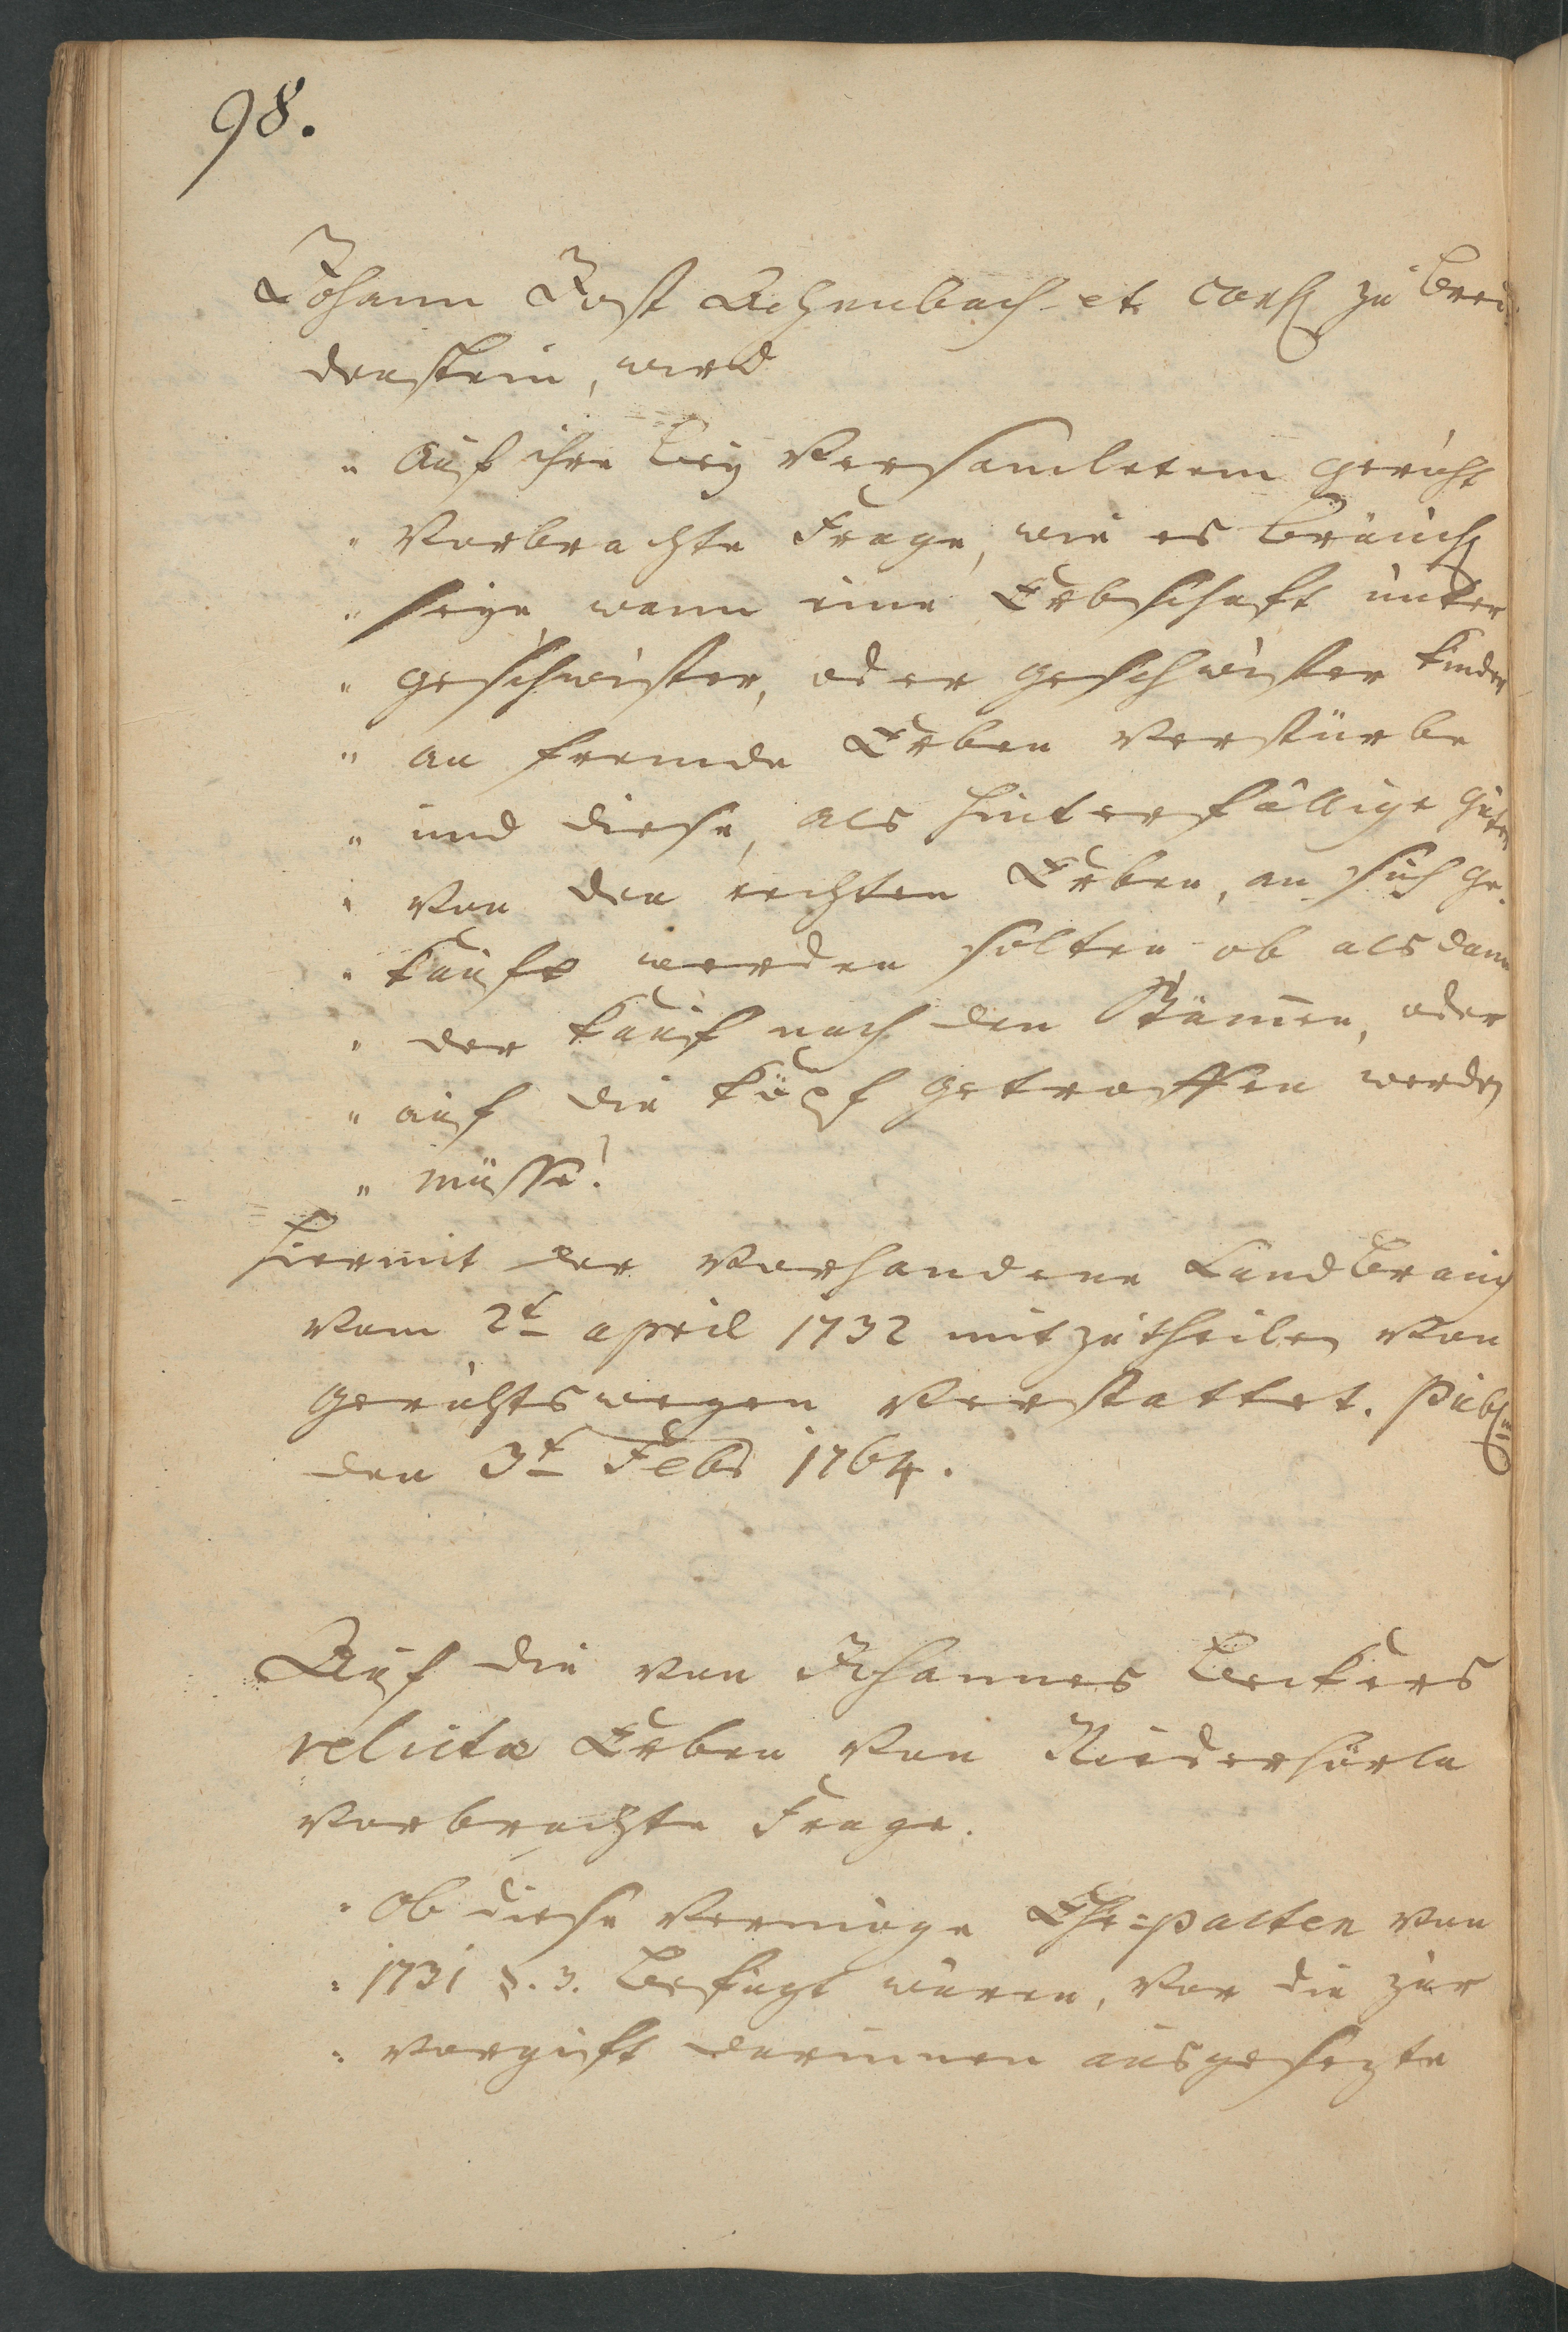 98.
Johann Jost Achenbach et Cons. zu Brei
denstein, wird
" auf ihre bey versamletem gericht
" vorbrachte Frage, wie es bräuch
" seye, wann eine Erbschaft unter
" geschwister, oder geschwister kinder
" an fremde Erben verstürbe
" und diese, als hinterfällige güter
" von den rechten Erben, an sich ge-
" kauft werden solten ob alsdann
" der kauf nach den Stämen, oder
" auf die köpf getroffen werden
" müsse?
hiermit der vorhandene Landbrauch
vom 2t april 1732 mitzutheilen von
gerichtswegen verstattet. Publ.
den 3t Febr 1764.
Auf die von Johannes Beckers
relicta Erben von Niederhörla
vorbrachte Frage.
" Ob diese vermöge Ehe=pacten von
" 1731 §. 3. befugt wären, vor die zur
" vorgift darinnen ausgesezte